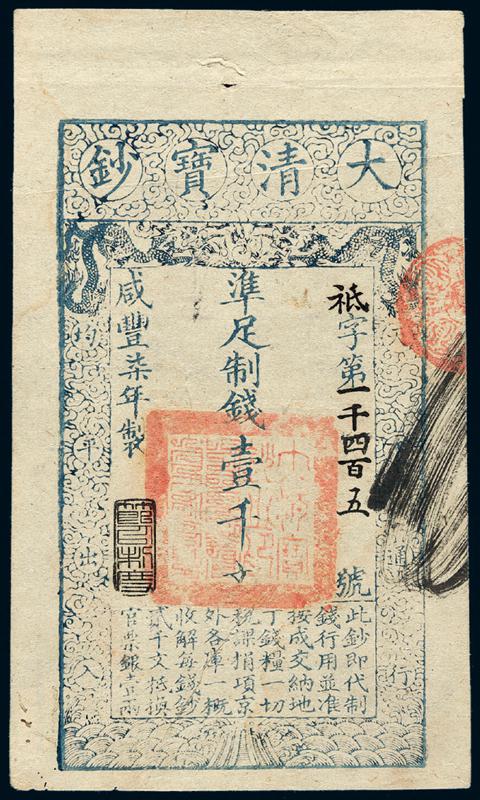 大清寶鈔
祗字第一千四百五號
準足制錢壹千文
咸豐柒年製
此鈔即代制
錢行用並准
按成交納地
丁錢糧一切
稅課捐項京
外各庫一概
收解每錢鈔
貳千文抵換
官票銀壹兩
通行
均平出入